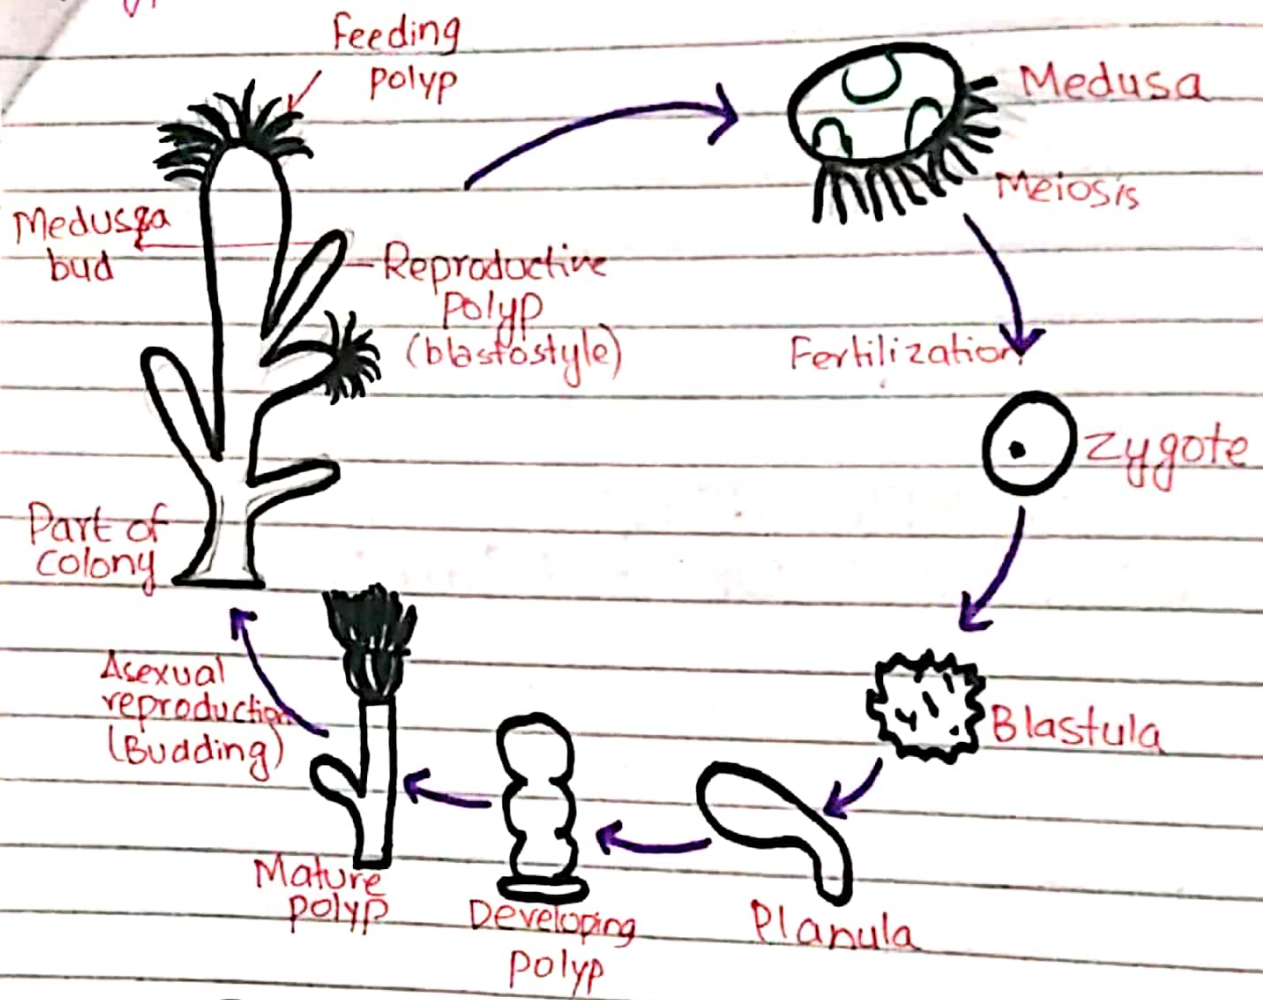 Feeding
polyp
Medusa
Meiosis
Medusa
bud
Reproductive
polyp
(blastostyle)
Fertilization
Zygote
Part of
colony
Asexual
reproduction
(Budding)
Blastula
Mature
polyp
Developing
polyp
Planula